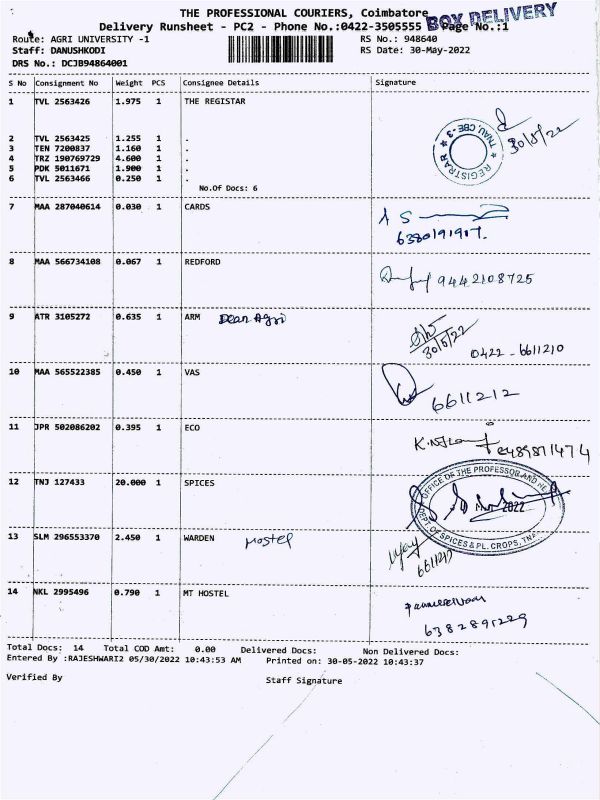 THE PROFESSIONAL COURIERS, Coimbatore
BOX DELIVERY
Delivery Runsheet - PC2 - Phone No.:0422-3505555 Page No.:1
Route: AGRI UNIVERSITY -1 RS No.: 948640
Staff: DANUSHKODI RS Date: 30-May-2022
DRS No.: DCJB94864001
S No Consignment No Weight PCS Consignee Details Signature
1 TVL 2563426 1.975 1 THE REGISTAR
REGISTRAR TNAU, CBE-3
30/5/22
2 TVL 2563425 1.255 1 .
3 TEN 7200837 1.160 1 .
4 TRZ 190769729 4.600 1 .
5 PDK 5011671 1.900 1 .
6 TVL 2563466 0.250 1 .
No.Of Docs: 6
7 MAA 287040614 0.030 1 CARDS
6380191917.
8 MAA 566734108 0.067 1 REDFORD
9442108725
9 ATR 3105272 0.635 1 ARM Dean Agri
30/5/22
0422 - 6611210
10 MAA 565522385 0.450 1 VAS
6611212
11 JPR 502086202 0.395 1 ECO
12 TNJ 127433 20.000 1 SPICES
OFFICE OF THE PROFESSOR AND HEAD
2022
DEPT. OF SPICES & PL. CROPS, TNAU
13 SLM 296553370 2.450 1 WARDEN Hostel
14 NKL 2995496 0.790 1 MT HOSTEL
6382891229
Total Docs: 14 Total COD Amt: 0.00 Delivered Docs: Non Delivered Docs:
Entered By :RAJESHWARI2 05/30/2022 10:43:53 AM Printed on: 30-05-2022 10:43:37
Verified By Staff Signature